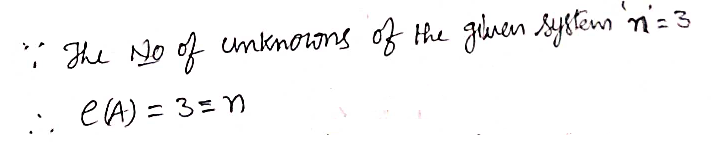 ∵ The No of unknowns of the given system 'n' = 3
∴ ρ(A) = 3 = n